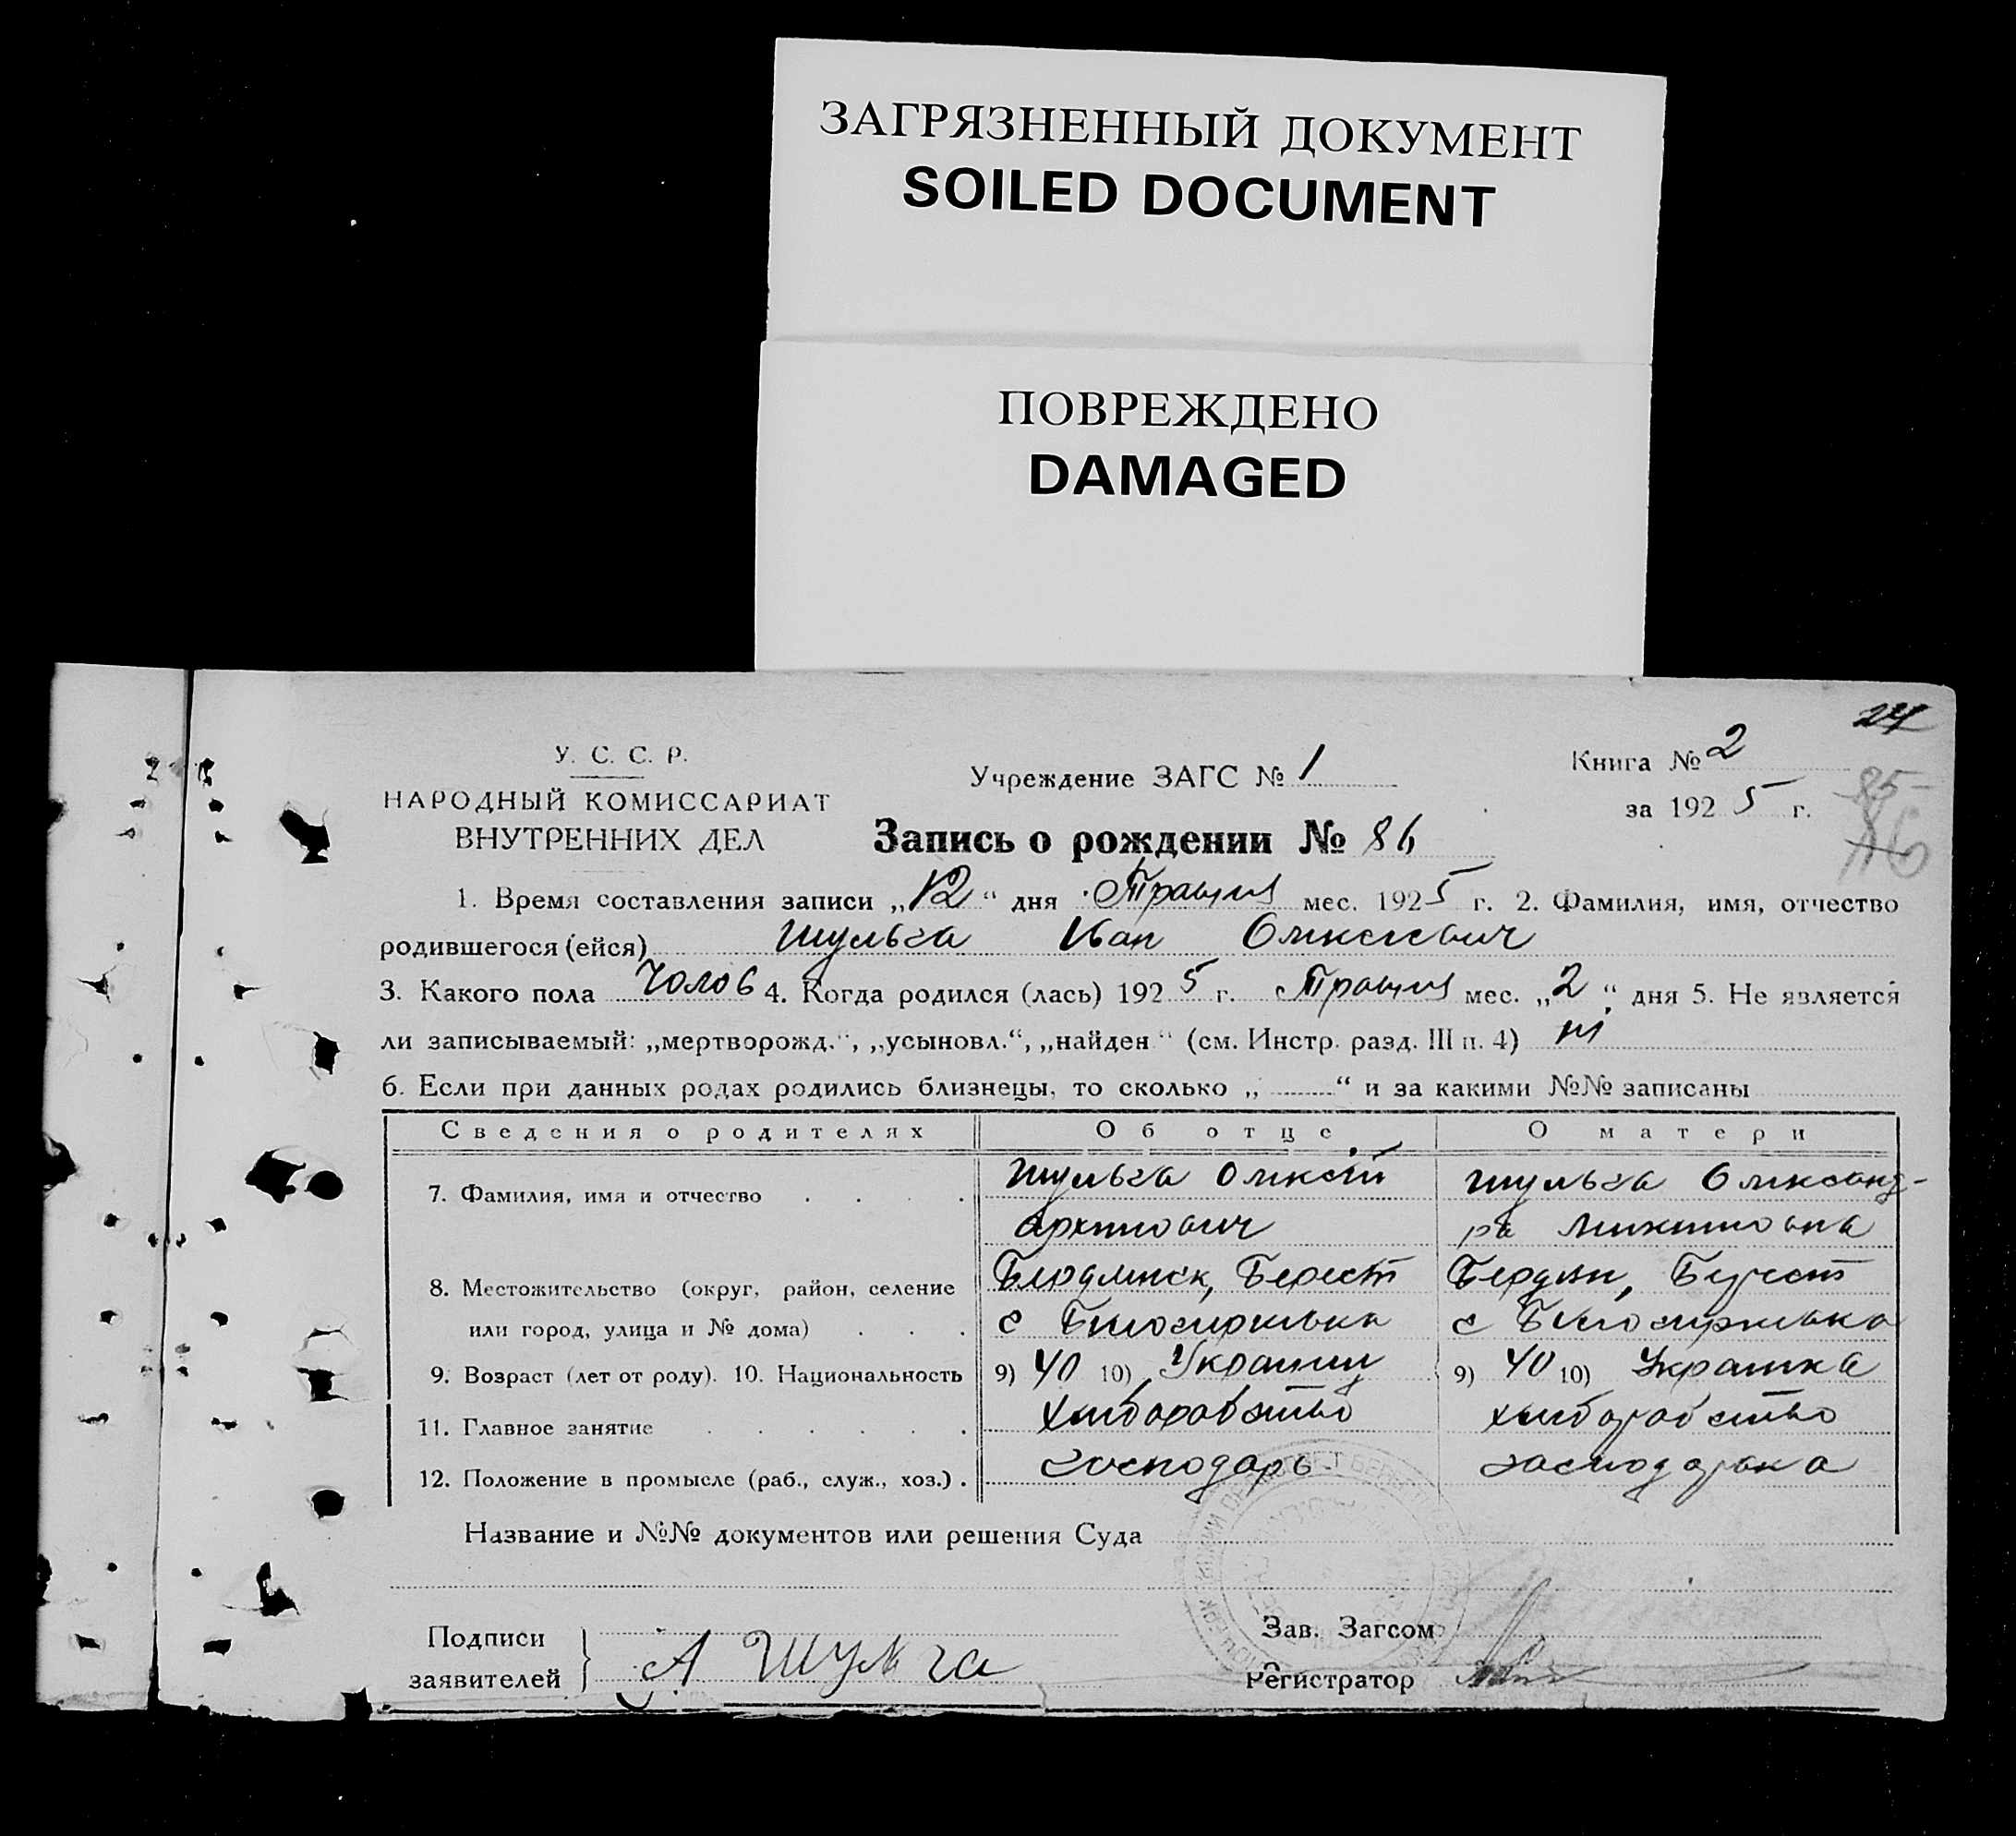 ЗАГРЯЗНЕННЫЙ ДОКУМЕНТ
SOILED DOCUMENT
ПОВРЕЖДЕНО
DAMAGED
24
У. С. С. Р.
НАРОДНЫЙ КОМИССАРИАТ
ВНУТРЕННИХ ДЕЛ
Учреждение ЗАГС № 1
Книга № 2
за 1925 г.
85
Запись о рождении № 86
1. Время составления записи „12“ дня Травня мес. 1925 г. 2. Фамилия, имя, отчество
родившегося (ейся) Шульга Иван Олексеевич
3. Какого пола Чолов 4. Когда родился (лась) 1925 г. Травня мес. „2“ дня 5. Не является
ли записываемый: „мертворожд.“, „усыновл.“, „найден“ (см. Инстр. разд. III п. 4) ні
6. Если при данных родах родились близнецы, то сколько „ “ и за какими №№ записаны
Сведения о родителях Об отце О матери
7. Фамилия, имя и отчество Шульга Олексій Архипович Шульга Олександра Микитовна
8. Местожительство (округ, район, селение Берест Бердян, Берест
или город, улица и № дома) с с
9. Возраст (лет от роду). 10. Национальность 9) 40 10) Українец 9) 40 10) Українка
11. Главное занятие хлиборобство хлиборобство
12. Положение в промысле (раб., служ., хоз.) господарь господарка
Название и №№ документов или решения Суда
Подписи
заявителей А Шульга
Зав. Загсом
Регистратор